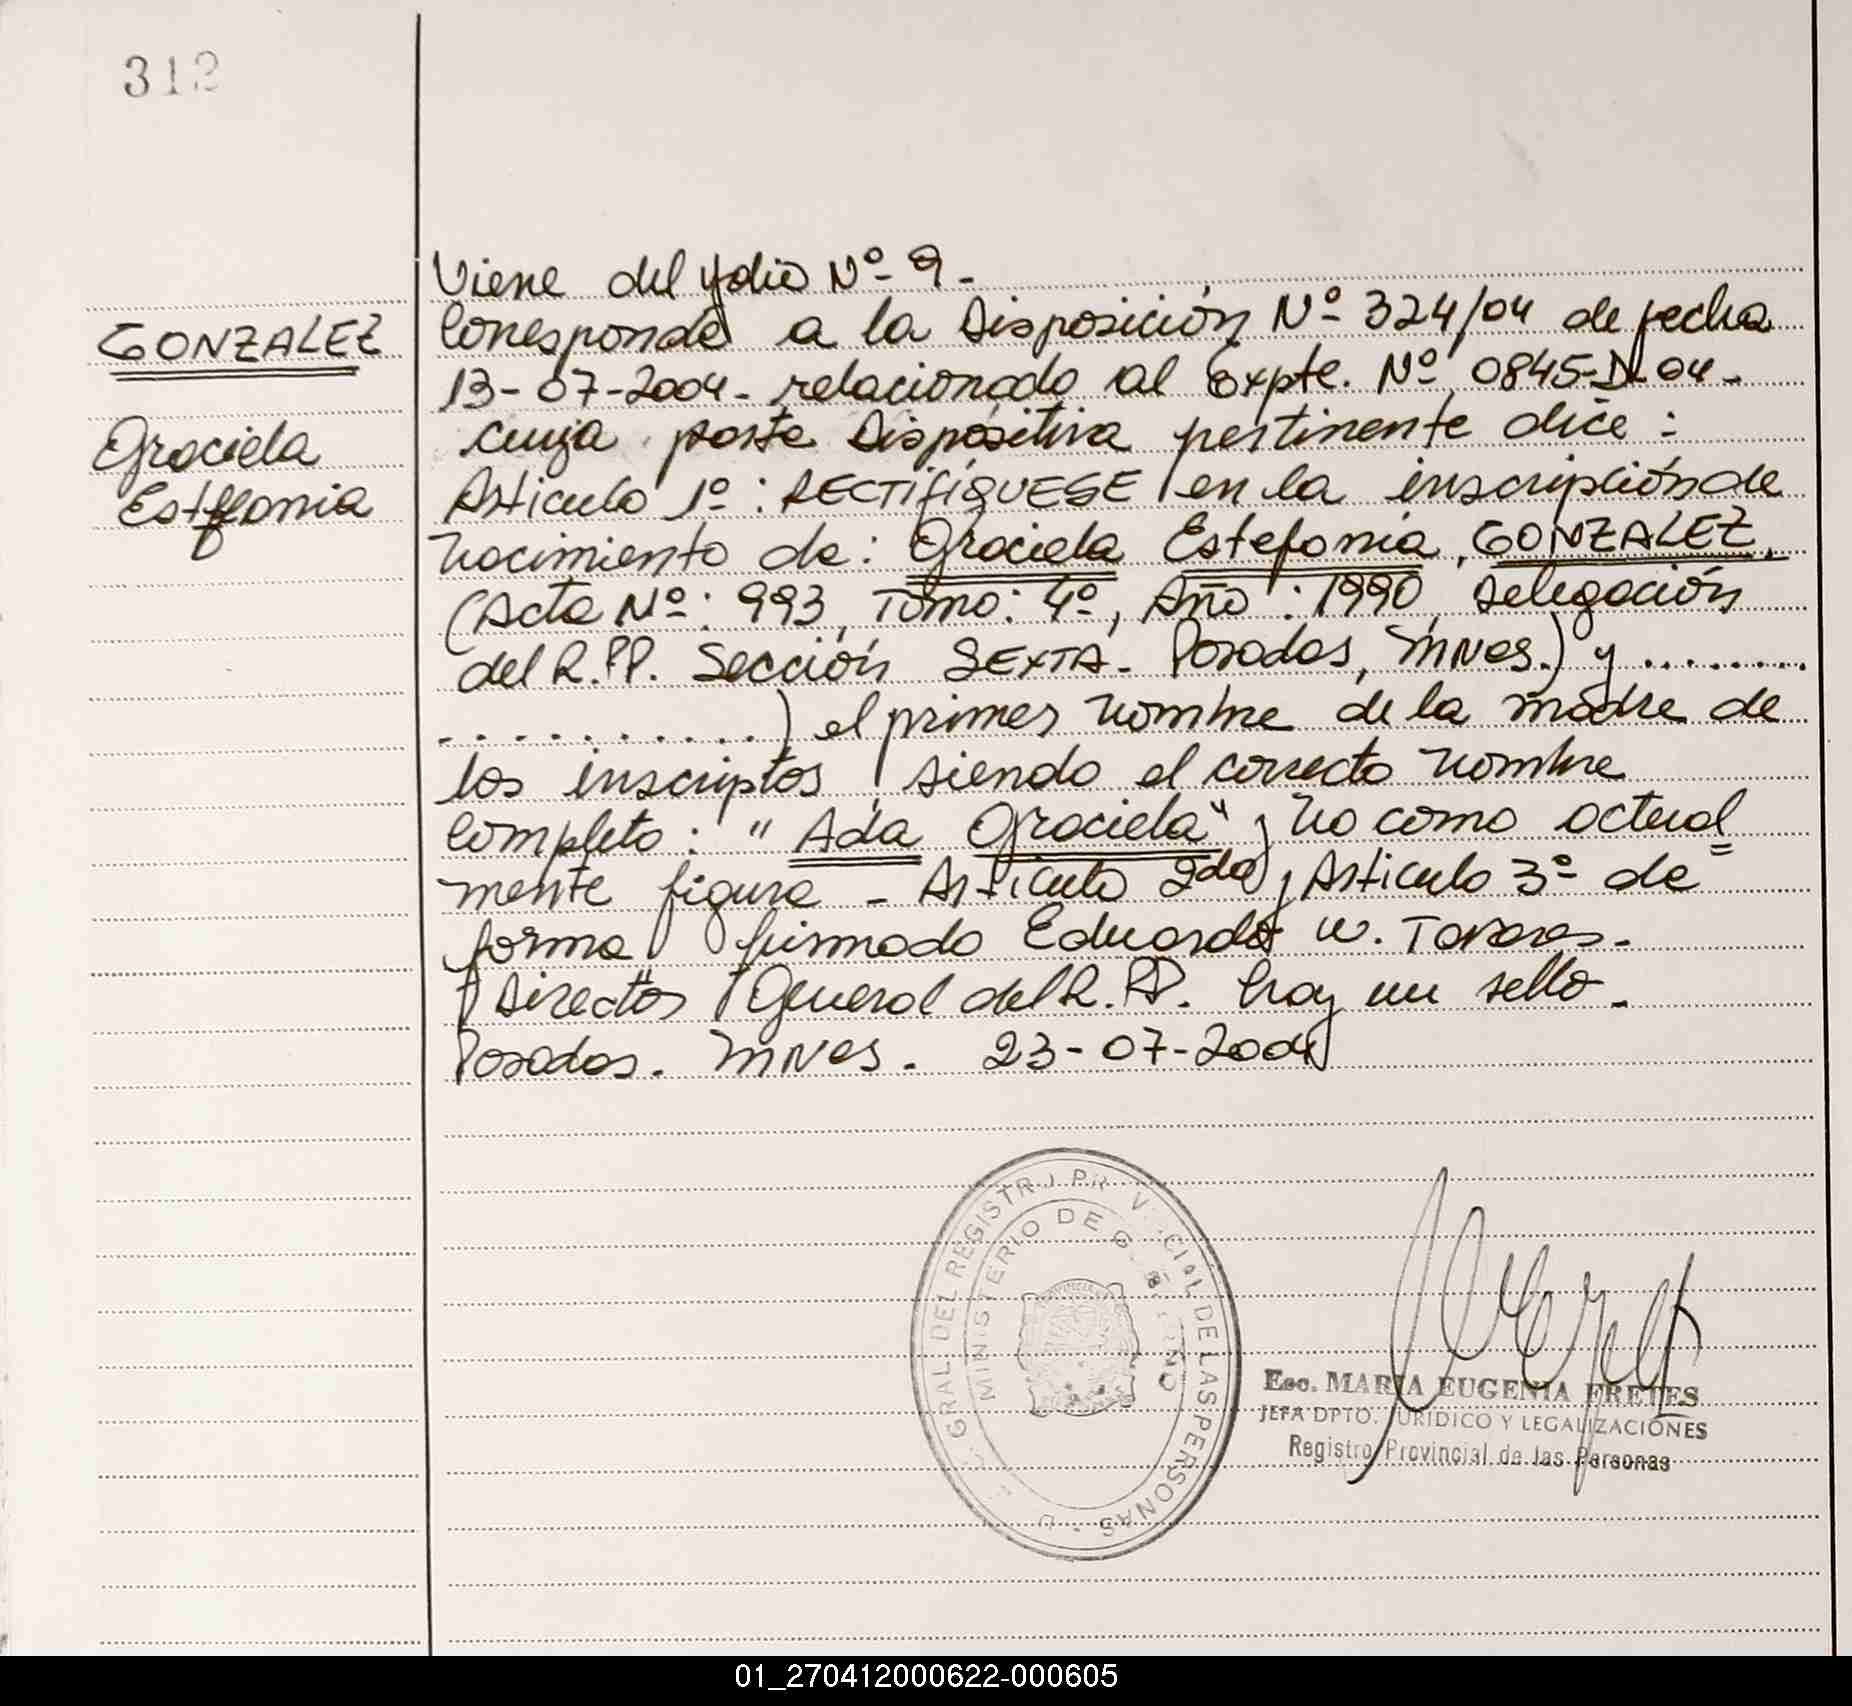 312
GONZALEZ
Graciela
Estefania
Viene del folio Nº 9.
Corresponde a la Disposición Nº 324/04 de fecha
13-07-2004. relacionado al Expte. Nº 0845-D-04.
cuya parte Dispositiva pertinente dice:
Articulo 1º: RECTIFIQUESE en la inscripción de
nacimiento de: Graciela Estefania GONZALEZ.
(Acta Nº: 993, Tomo: 4º, Año: 1990, Delegación
del R.PP. Sección SEXTA. Posadas, Mnes.) y ........
...........) el primer nombre de la madre de
los inscriptos, siendo el correcto nombre
completo: "Ada Graciela" y no como actual=
mente figura - Articulo 2do y Articulo 3º de
forma firmado Eduardo W.
Director General del R.PP. hay un sello.
Posadas. Mnes. 23-07-2004
GRAL DEL REGISTRO PROVINCIAL DE LAS PERSONAS
MINISTERIO DE GOBIERNO
Esc. MARIA EUGENIA FRETES
JEFA DPTO. JURIDICO Y LEGALIZACIONES
Registro Provincial de las Personas
01_270412000622-000605